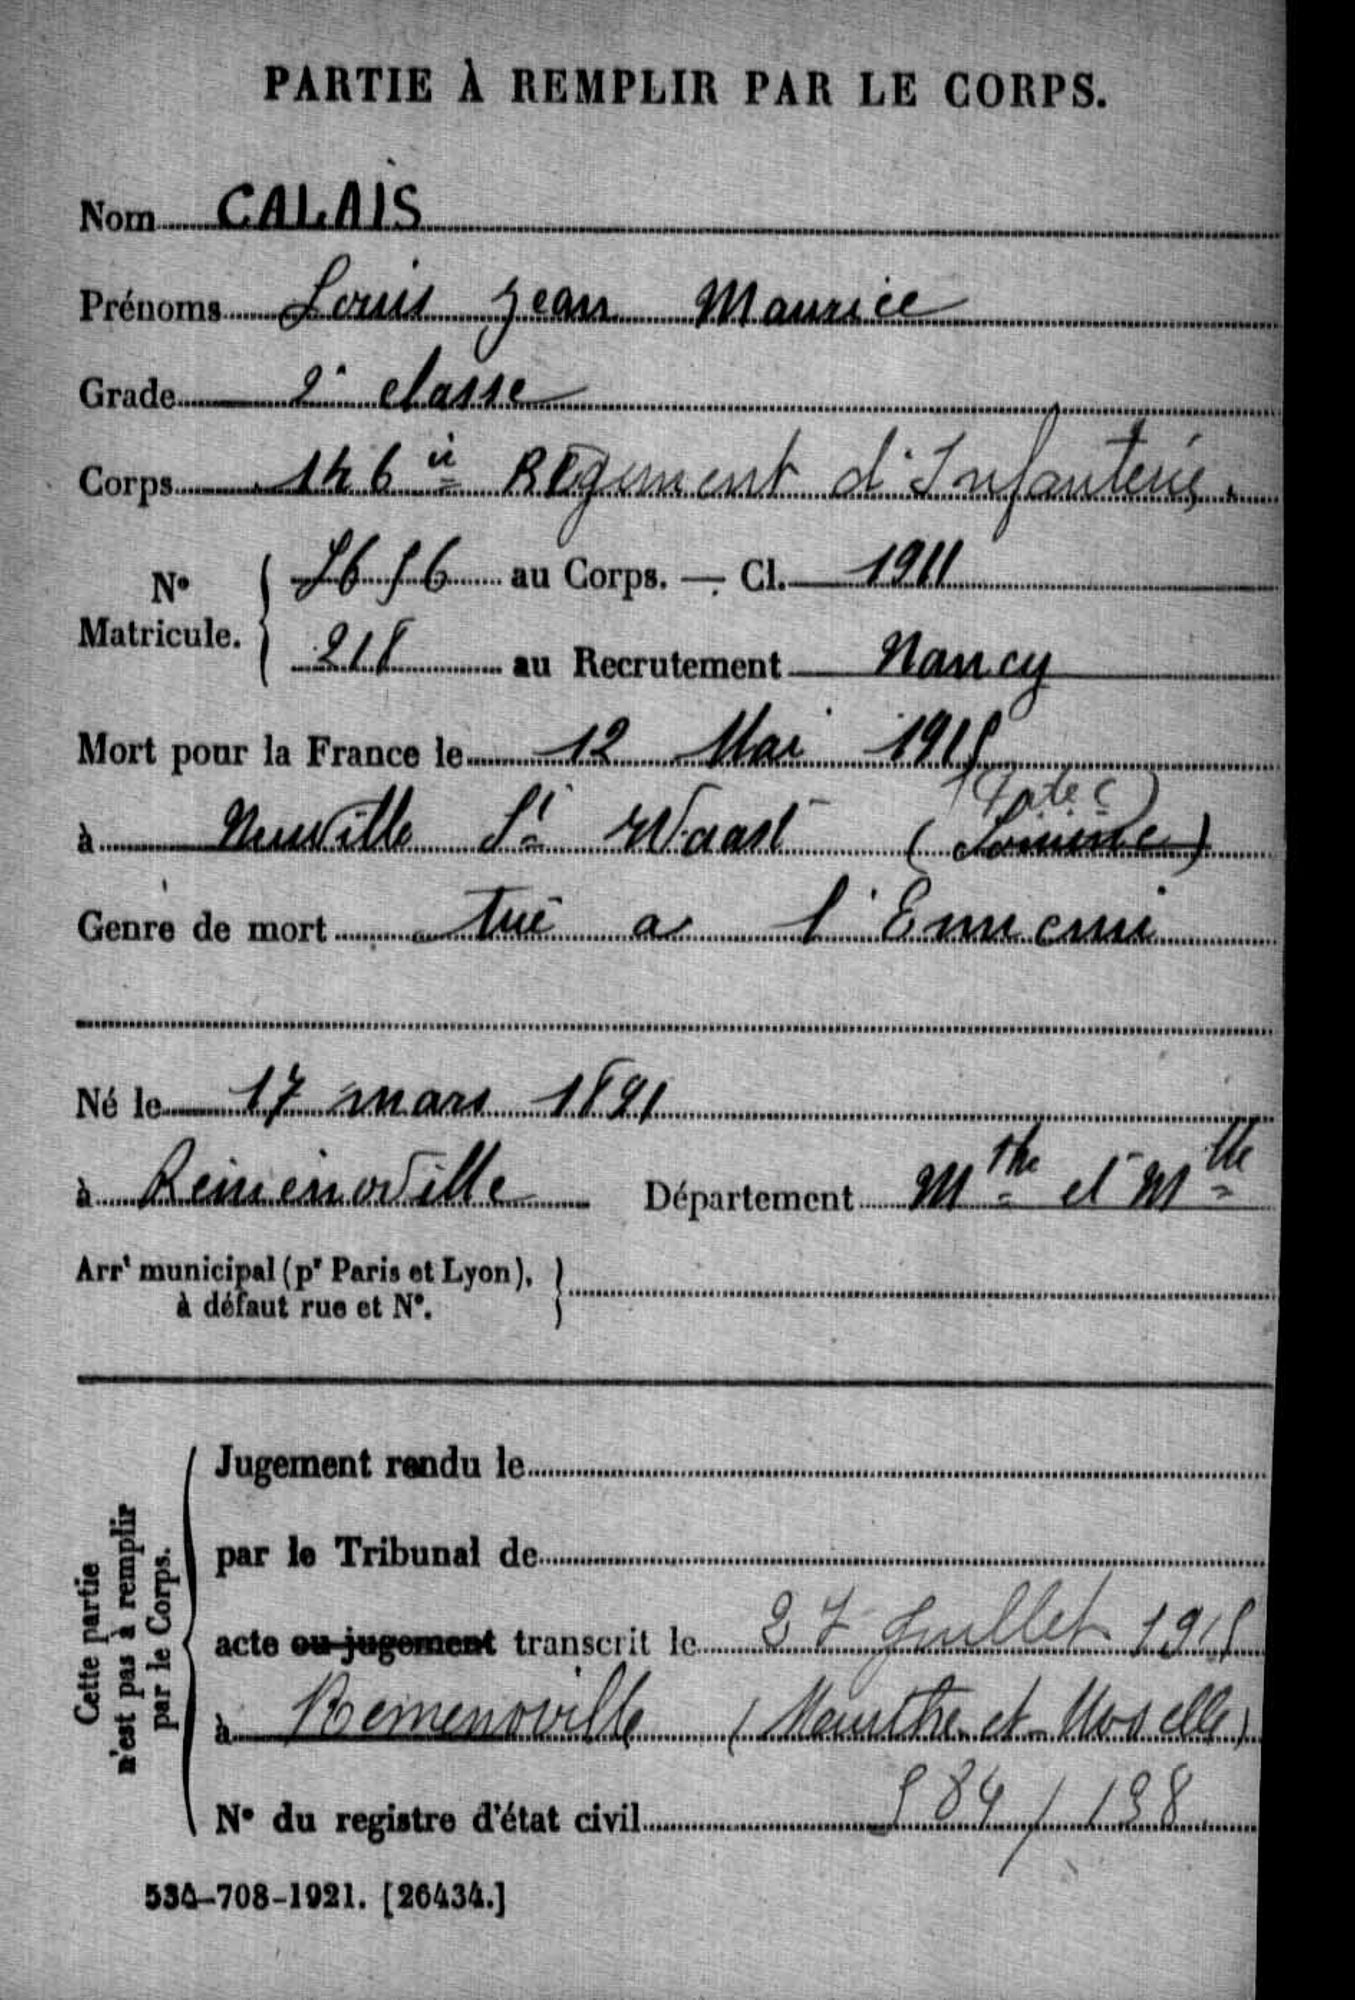 PARTIE À REMPLIR PAR LE CORPS.
Nom CALAIS
Prénoms Louis Jean Maurice
Grade 2e classe
Corps 146e Régiment d'Infanterie.
No Matricule. { 5656 au Corps. — Cl. 1911
218 au Recrutement Nancy
Mort pour la France le 12 Mai 1915
(P de C)
à Neuville St Waast (Somme)
Genre de mort tué a l'Ennemi
Né le 17 mars 1891
à Remenoville Département Mthe et Mlle
Arrt municipal (pr Paris et Lyon), à défaut rue et No. }
Cette partie n'est pas à remplir par le Corps.
Jugement rendu le
par le Tribunal de
acte ou jugement transcrit le 27 Juillet 1915
à Remenoville (Meurthe et Moselle)
No du registre d'état civil 584/138
534-708-1921. [26434.]